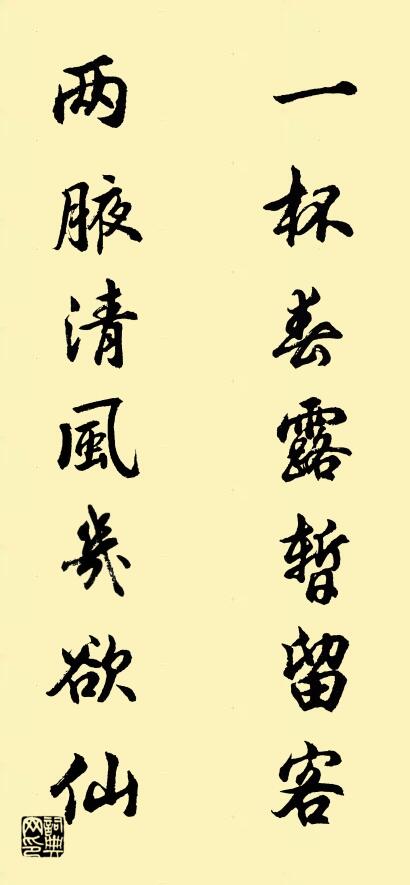 一杯春露暂留客
两腋清風幾欲仙
詞典网印